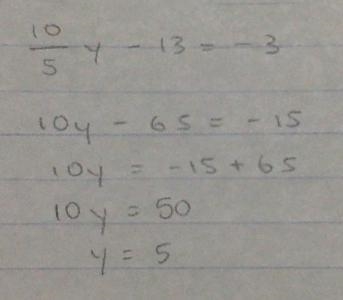 10/5 y - 13 = -3
10y - 65 = -15
10y = -15 + 65
10y = 50
y = 5